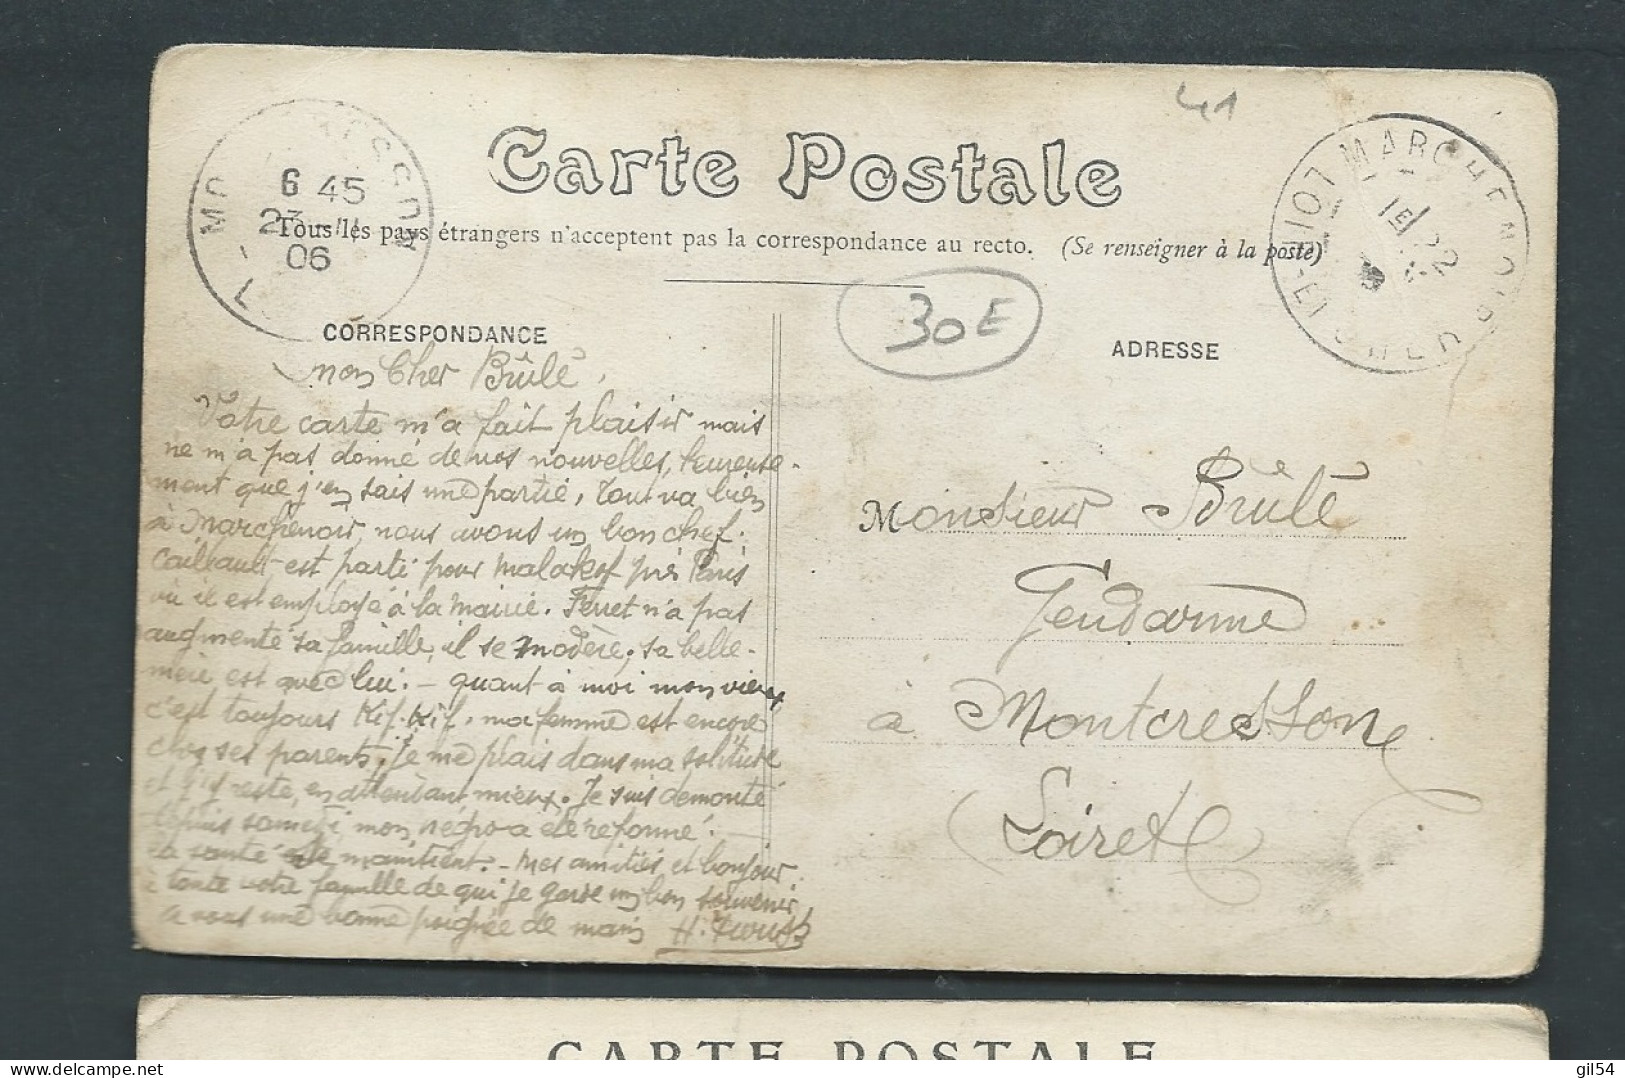 41
Carte Postale
Tous les pays étrangers n'acceptent pas la correspondance au recto. (Se renseigner à la poste)
6 45
23
06
MARCHENOIR
LOIR-ET-CHER
1E
22
30E
CORRESPONDANCE
ADRESSE
mon Cher Brûlé,
Votre carte m'a fait plaisir mais
ne m'a pas donné de vos nouvelles, heureuse-
ment que j'en sais une partie, tout va bien
à Marchenoir, nous avons un bon chef.
Cailbault est parti pour Malakof près Paris
où il est employé à la mairie. Ferret n'a pas
augmenté sa famille, il se modère, sa belle-
mère est avec lui. - quant à moi mon vieux
c'est toujours Kif-Kif, ma femme est encore
chez ses parents, je me plais dans ma solitude
et j'y reste, en attendant mieux. Je suis demonté
depuis samedi, mon négro a été réformé. -
la santé se maintient. - Mes amitiés et bonjour
à toute votre famille de qui je garde un bon souvenir,
à vous une bonne poignée de main H.
Monsieur Brûlé
Gendarme
à Montcresson
(Loiret)
CARTE POSTALE
gil54